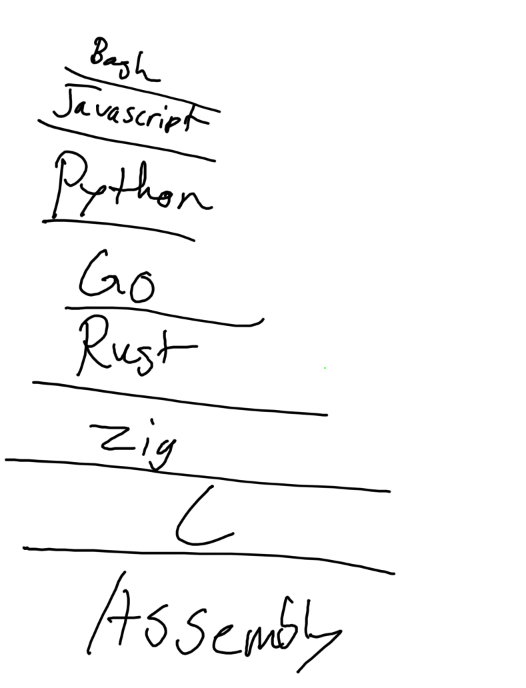 Bash
Javascript
Python
Go
Rust
Zig
C
Assembly